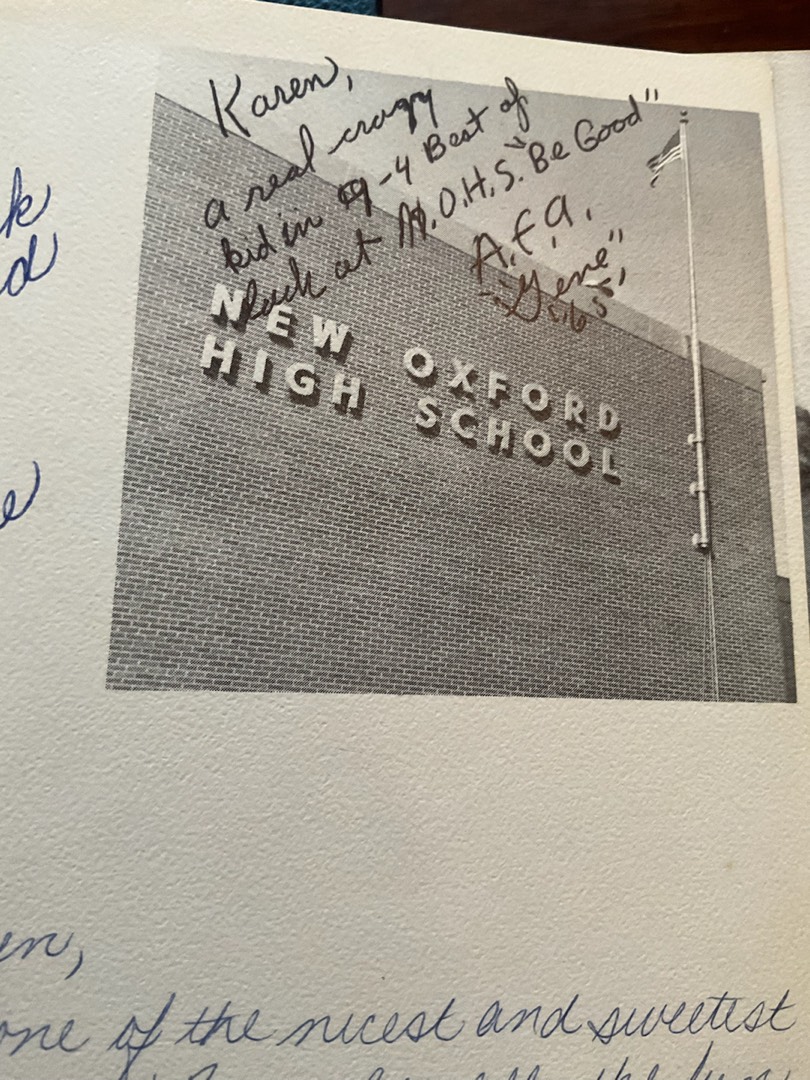 k
d
e
Karen,
a real crazy
kid in 9-4 Best of
luck at N.O.H.S. "Be Good"
A.F.A.
"Gene"
NEW OXFORD
HIGH SCHOOL
en,
one of the nicest and sweetest